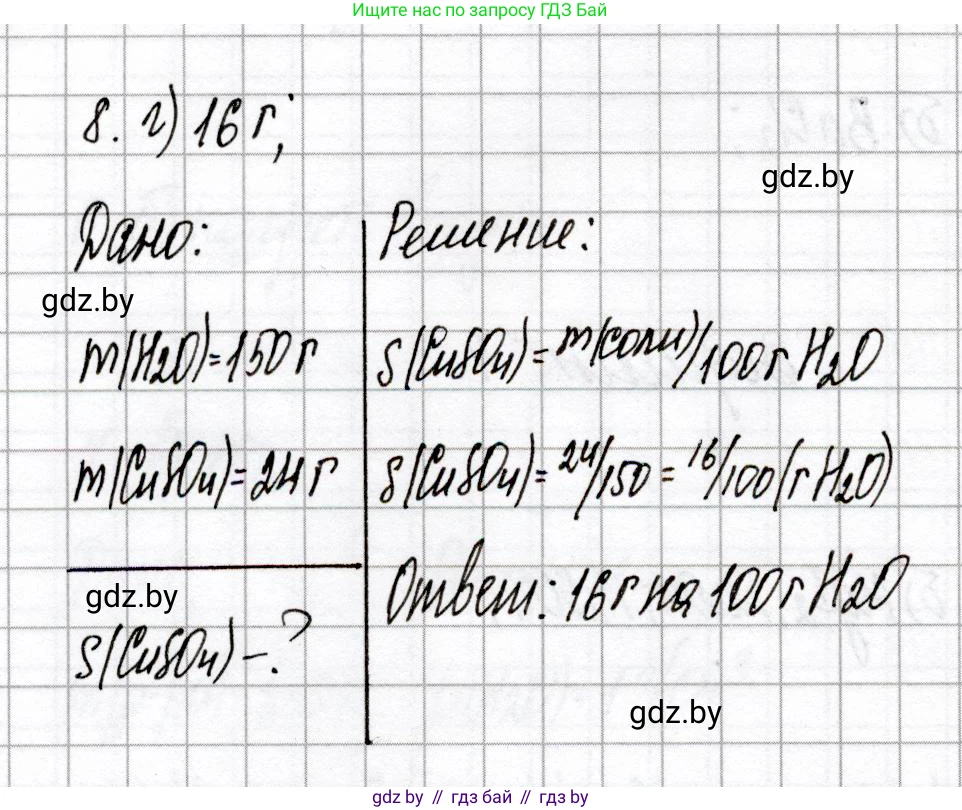 Ищите нас по запросу ГДЗ Бай
8. г) 16 г;
gdz.by
Дано:
Решение:
gdz.by
m(H2O)=150 г
S(CuSO4)=m(соли)/100 г H2O
m(CuSO4)=24 г
S(CuSO4)=24/150=16/100(г H2O)
gdz.by
Ответ: 16 г на 100 г H2O
S(CuSO4)-?
gdz.by
gdz.by // гдз бай // гдз by